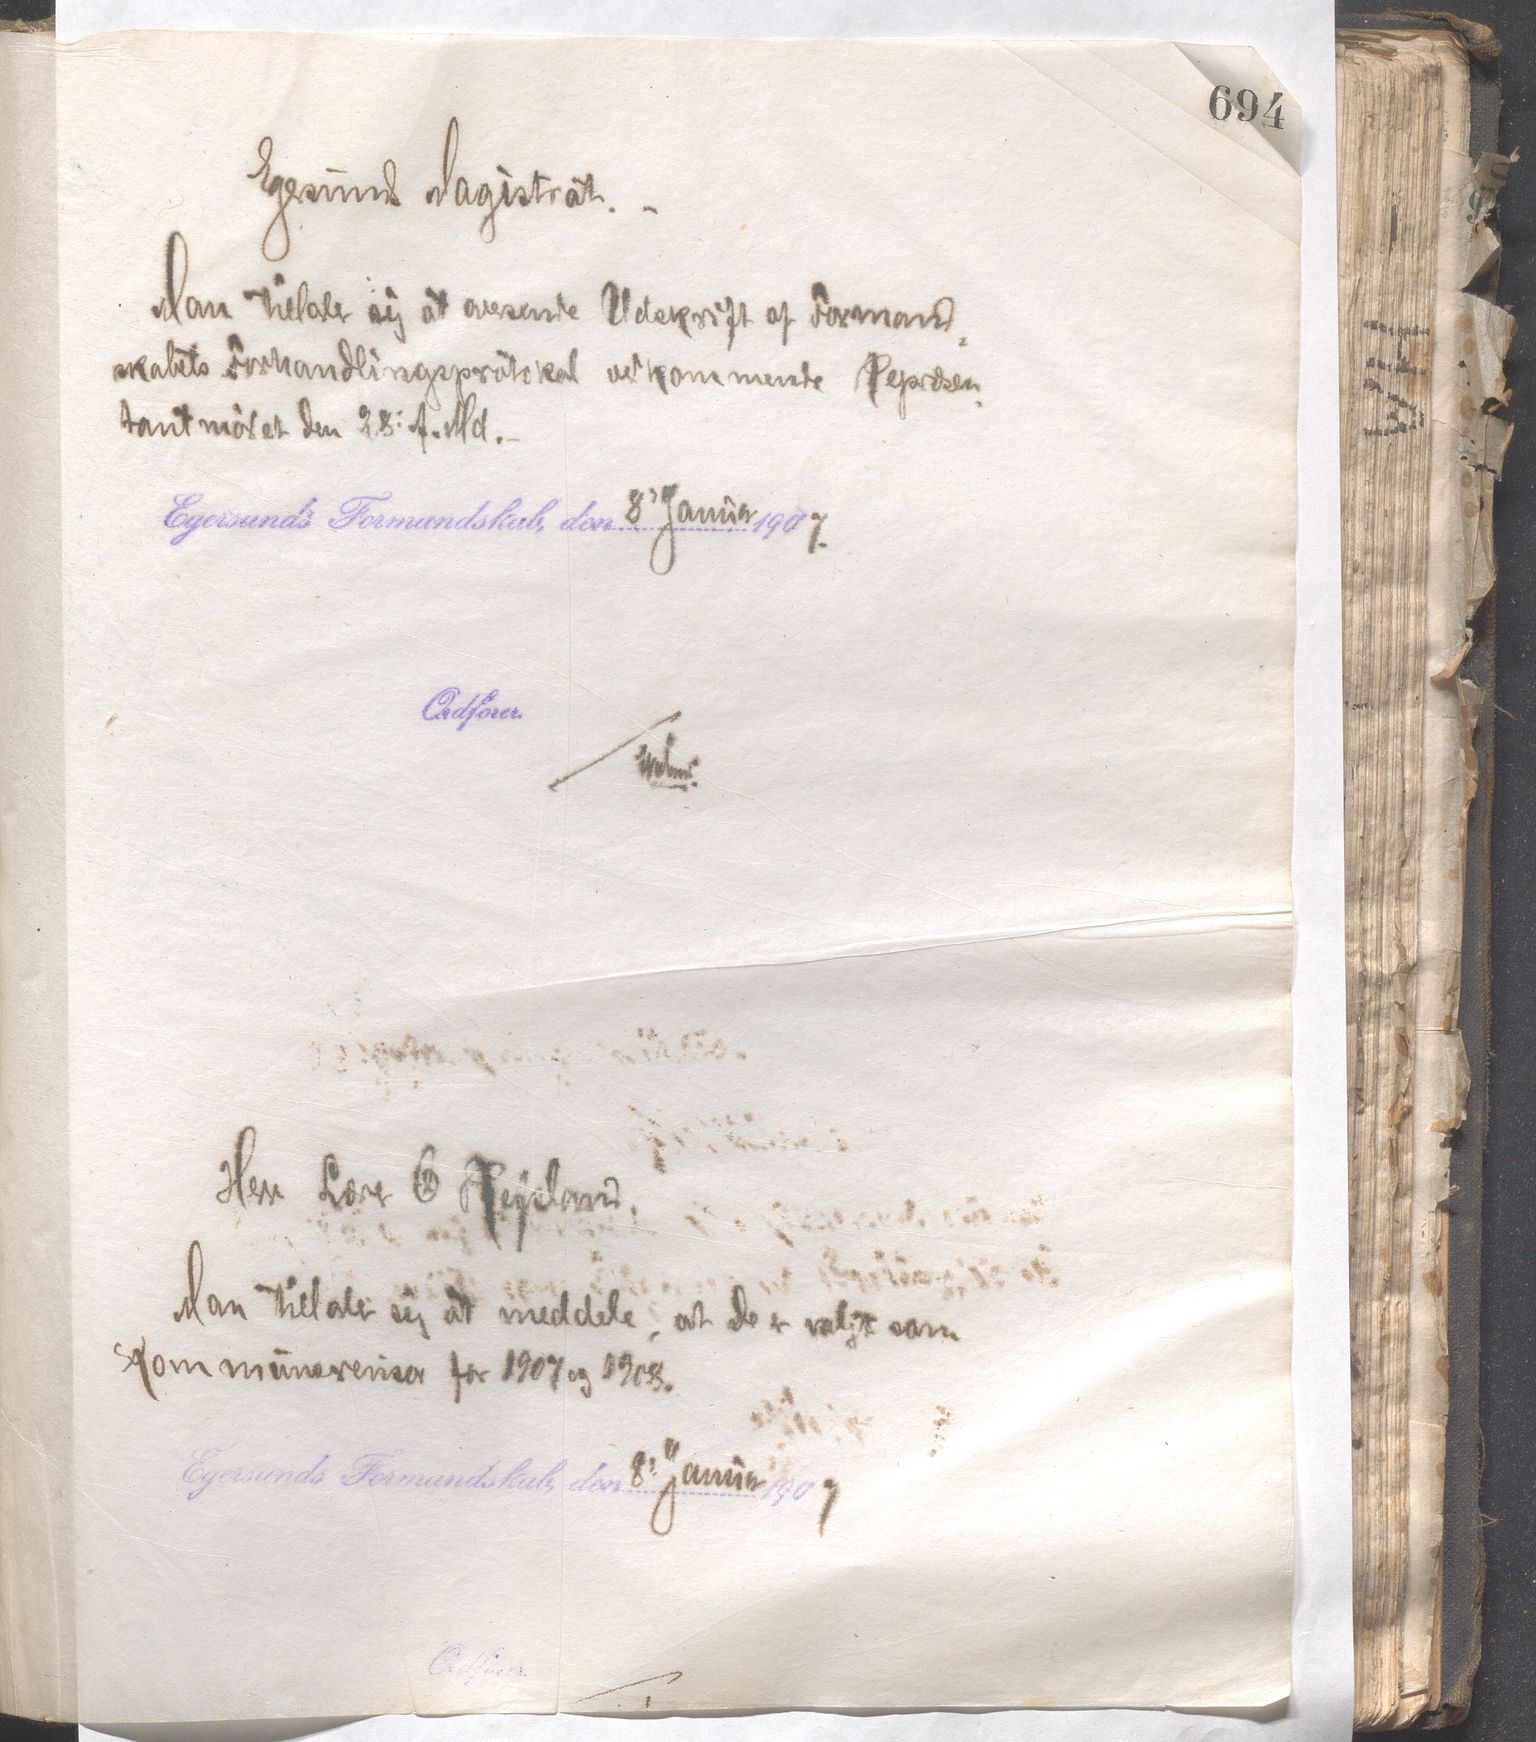 694
Egersund Magistrat. -
Man tillader sig at oversende Udskrift af Formand-
skabets Forhandlingsprotokol vedkommende Repræsen-
tantmødet den 28: f. Md. -
Egersunds Formandskab, den 8' Januar 1907.
Ordfører.
Herr Lærer O Repsland,
Man tillader sig at meddele, at De er valgt som
Kommunerevisor for 1907 og 1908.
Egersunds Formandskab, den 8' Januar 1907
Ordfører.